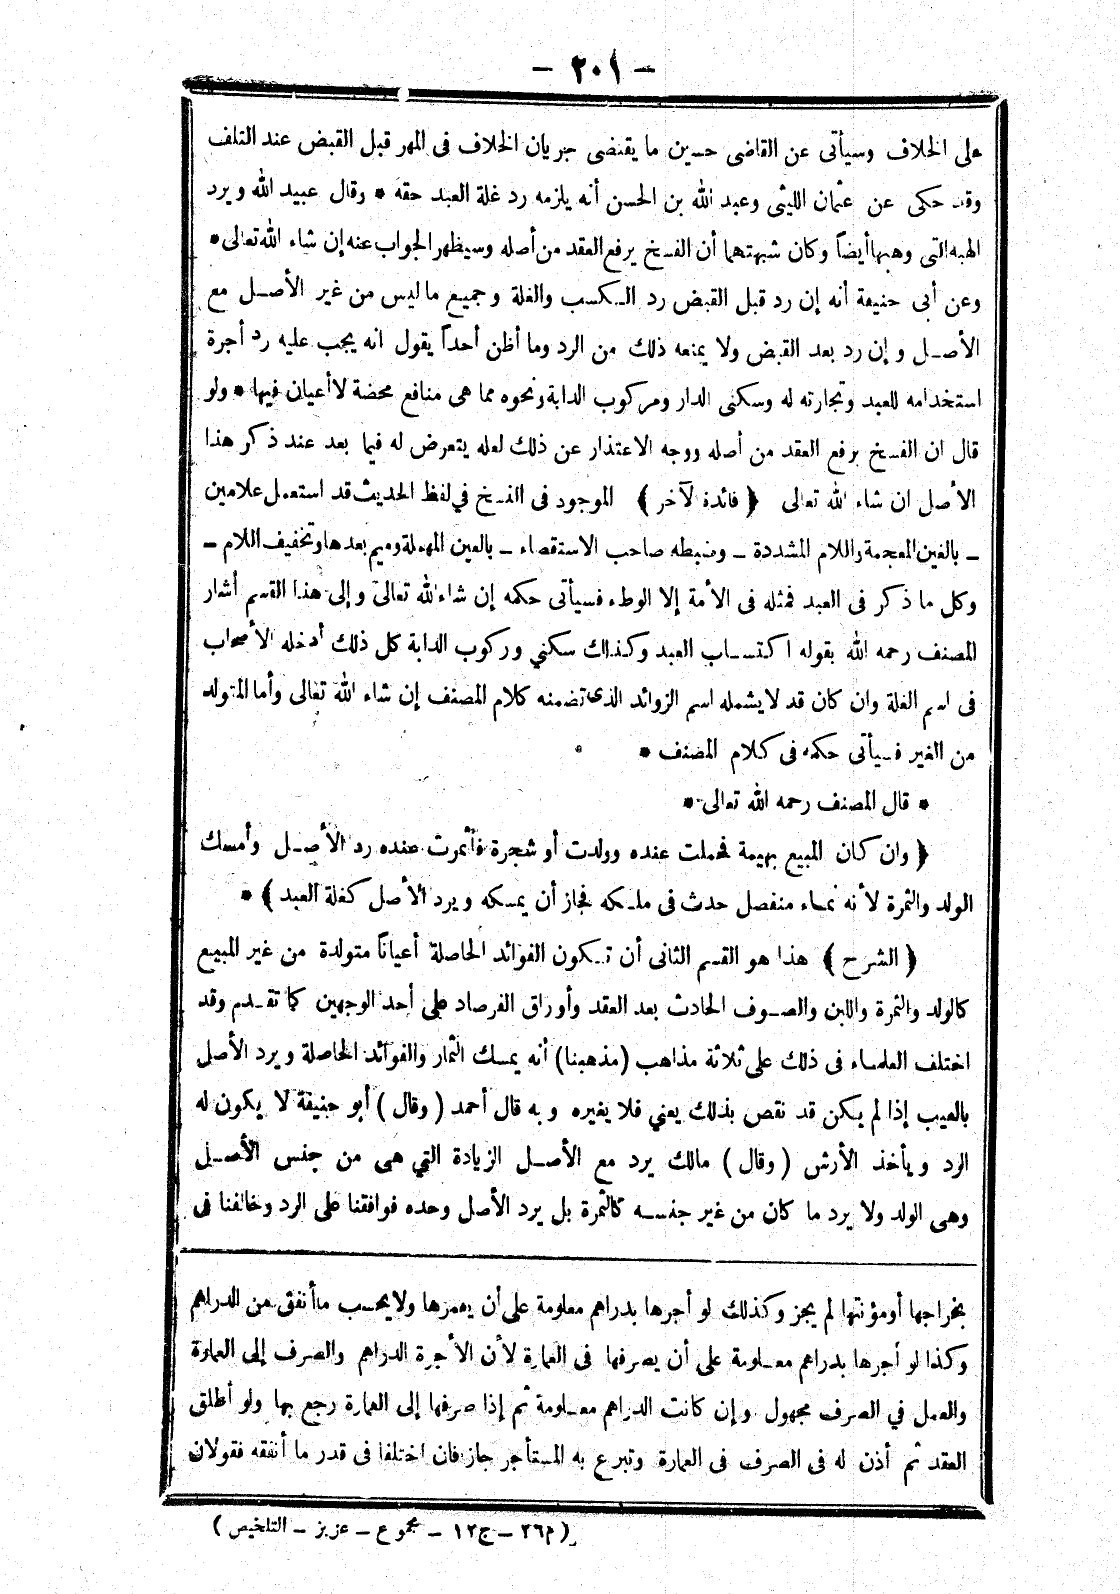 – ٢٠١ –
على الخلاف وسيأتى عن القاضى حسين ما يقتضى جريان الخلاف فى المهر قبل القبض عند التلف
وقد حكى عن عثمان الليثى وعبد الله بن الحسن أنه يلزمه رد غلة العبد حقه * وقال عبيد الله ويرد
الهبه التى وهبها أيضاً وكان شبهتهما أن الفسخ يرفع العقد من أصله وسيظهر الجواب عنه إن شاء الله تعالى *
وعن أبى حنيفة أنه إن رد قبل القبض رد الكسب والغلة وجميع ما ليس من غير الأصل مع
الأصل وإن رد بعد القبض ولا يمنعه ذلك من الرد وما أظن أحداً يقول انه يجب عليه رد أجرة
استخدامه للعبد وتجارته له وسكنى الدار ومركوب الدابة ونحوه مما هى منافع محضة لا أعيان فيها * ولو
قال ان الفسخ يرفع العقد من أصله ووجه الاعتذار عن ذلك لعله يتعرض له فيما بعد عند ذكر هذا
الأصل ان شاء الله تعالى ﴿ فائدة لآخر ﴾ الموجود فى النسخ في لفظ الحديث قد استعمل علامين
– بالغين المعجمة واللام المشددة – وضبطه صاحب الاستقصاء – بالعين المهملة وميم بعدها وتخفيف اللام –
وكل ما ذكر فى العبد فمثله فى الأمة إلا الوطء فسيأتى حكمه إن شاء الله تعالى وإلى هذا القسم أشار
المصنف رحمه الله بقوله اكتساب العبد وكذلك سكني وركوب الدابة كل ذلك أدخله الأصحاب
فى اسم الغلة وان كان قد لا يشمله اسم الزوائد الذى تضمنه كلام المصنف إن شاء الله تعالى وأما المتولد
من الغير فسيأتى حكمه فى كلام المصنف *
* قال المصنف رحمه الله تعالى *
﴿ وان كان المبيع بهيمة فحملت عنده وولدت أو شجرة فأثمرت عنده رد الأصل وأمسك
الولد والثمرة لأنه نماء منفصل حدث فى ملكه فجاز أن يمسكه ويرد الأصل كغلة العبد ﴾ *
﴿ الشرح ﴾ هذا هو القسم الثانى أن تكون الفوائد الحاصلة أعيانا متولدة من غير المبيع
كالولد والثمرة واللبن والصوف الحادث بعد العقد وأوراق الفرصاد على أحد الوجهين كما تقدم وقد
اختلف العلماء فى ذلك على ثلاثة مذاهب (مذهبنا) أنه يمسك الثمار والفوائد الحاصلة ويرد الأصل
بالعيب إذا لم يكن قد نقص بذلك يعني فلا يغيره وبه قال أحمد (وقال) أبو حنيفة لا يكون له
الرد ويأخذ الأرش (وقال) مالك يرد مع الأصل الزيادة التي هى من جنس الأصل
وهى الولد ولا يرد ما كان من غير جنسه كالثمرة بل يرد الأصل وحده فوافقنا على الرد وخالفنا فى
بخراجها أو مؤنتها لم يجز وكذلك لو أجرها بدراهم معلومة على أن يعمرها ولا يحسب ما أنفق من الدراهم
وكذا لو أجرها بدراهم معلومة على أن يصرفها فى العمارة لأن الأجرة الدراهم والصرف إلى العمارة
والعمل في الصرف مجهول وإن كانت الدراهم معلومة ثم إذا صرفها إلى العمارة رجع بها ولو أطلق
العقد ثم أذن له فى الصرف فى العمارة وتبرع به المستأجر جاز فان اختلفا فى قدر ما أنفقه فقولان
(م٢٦ – ج١٢ – مجموع – عزيز – التلخيص)